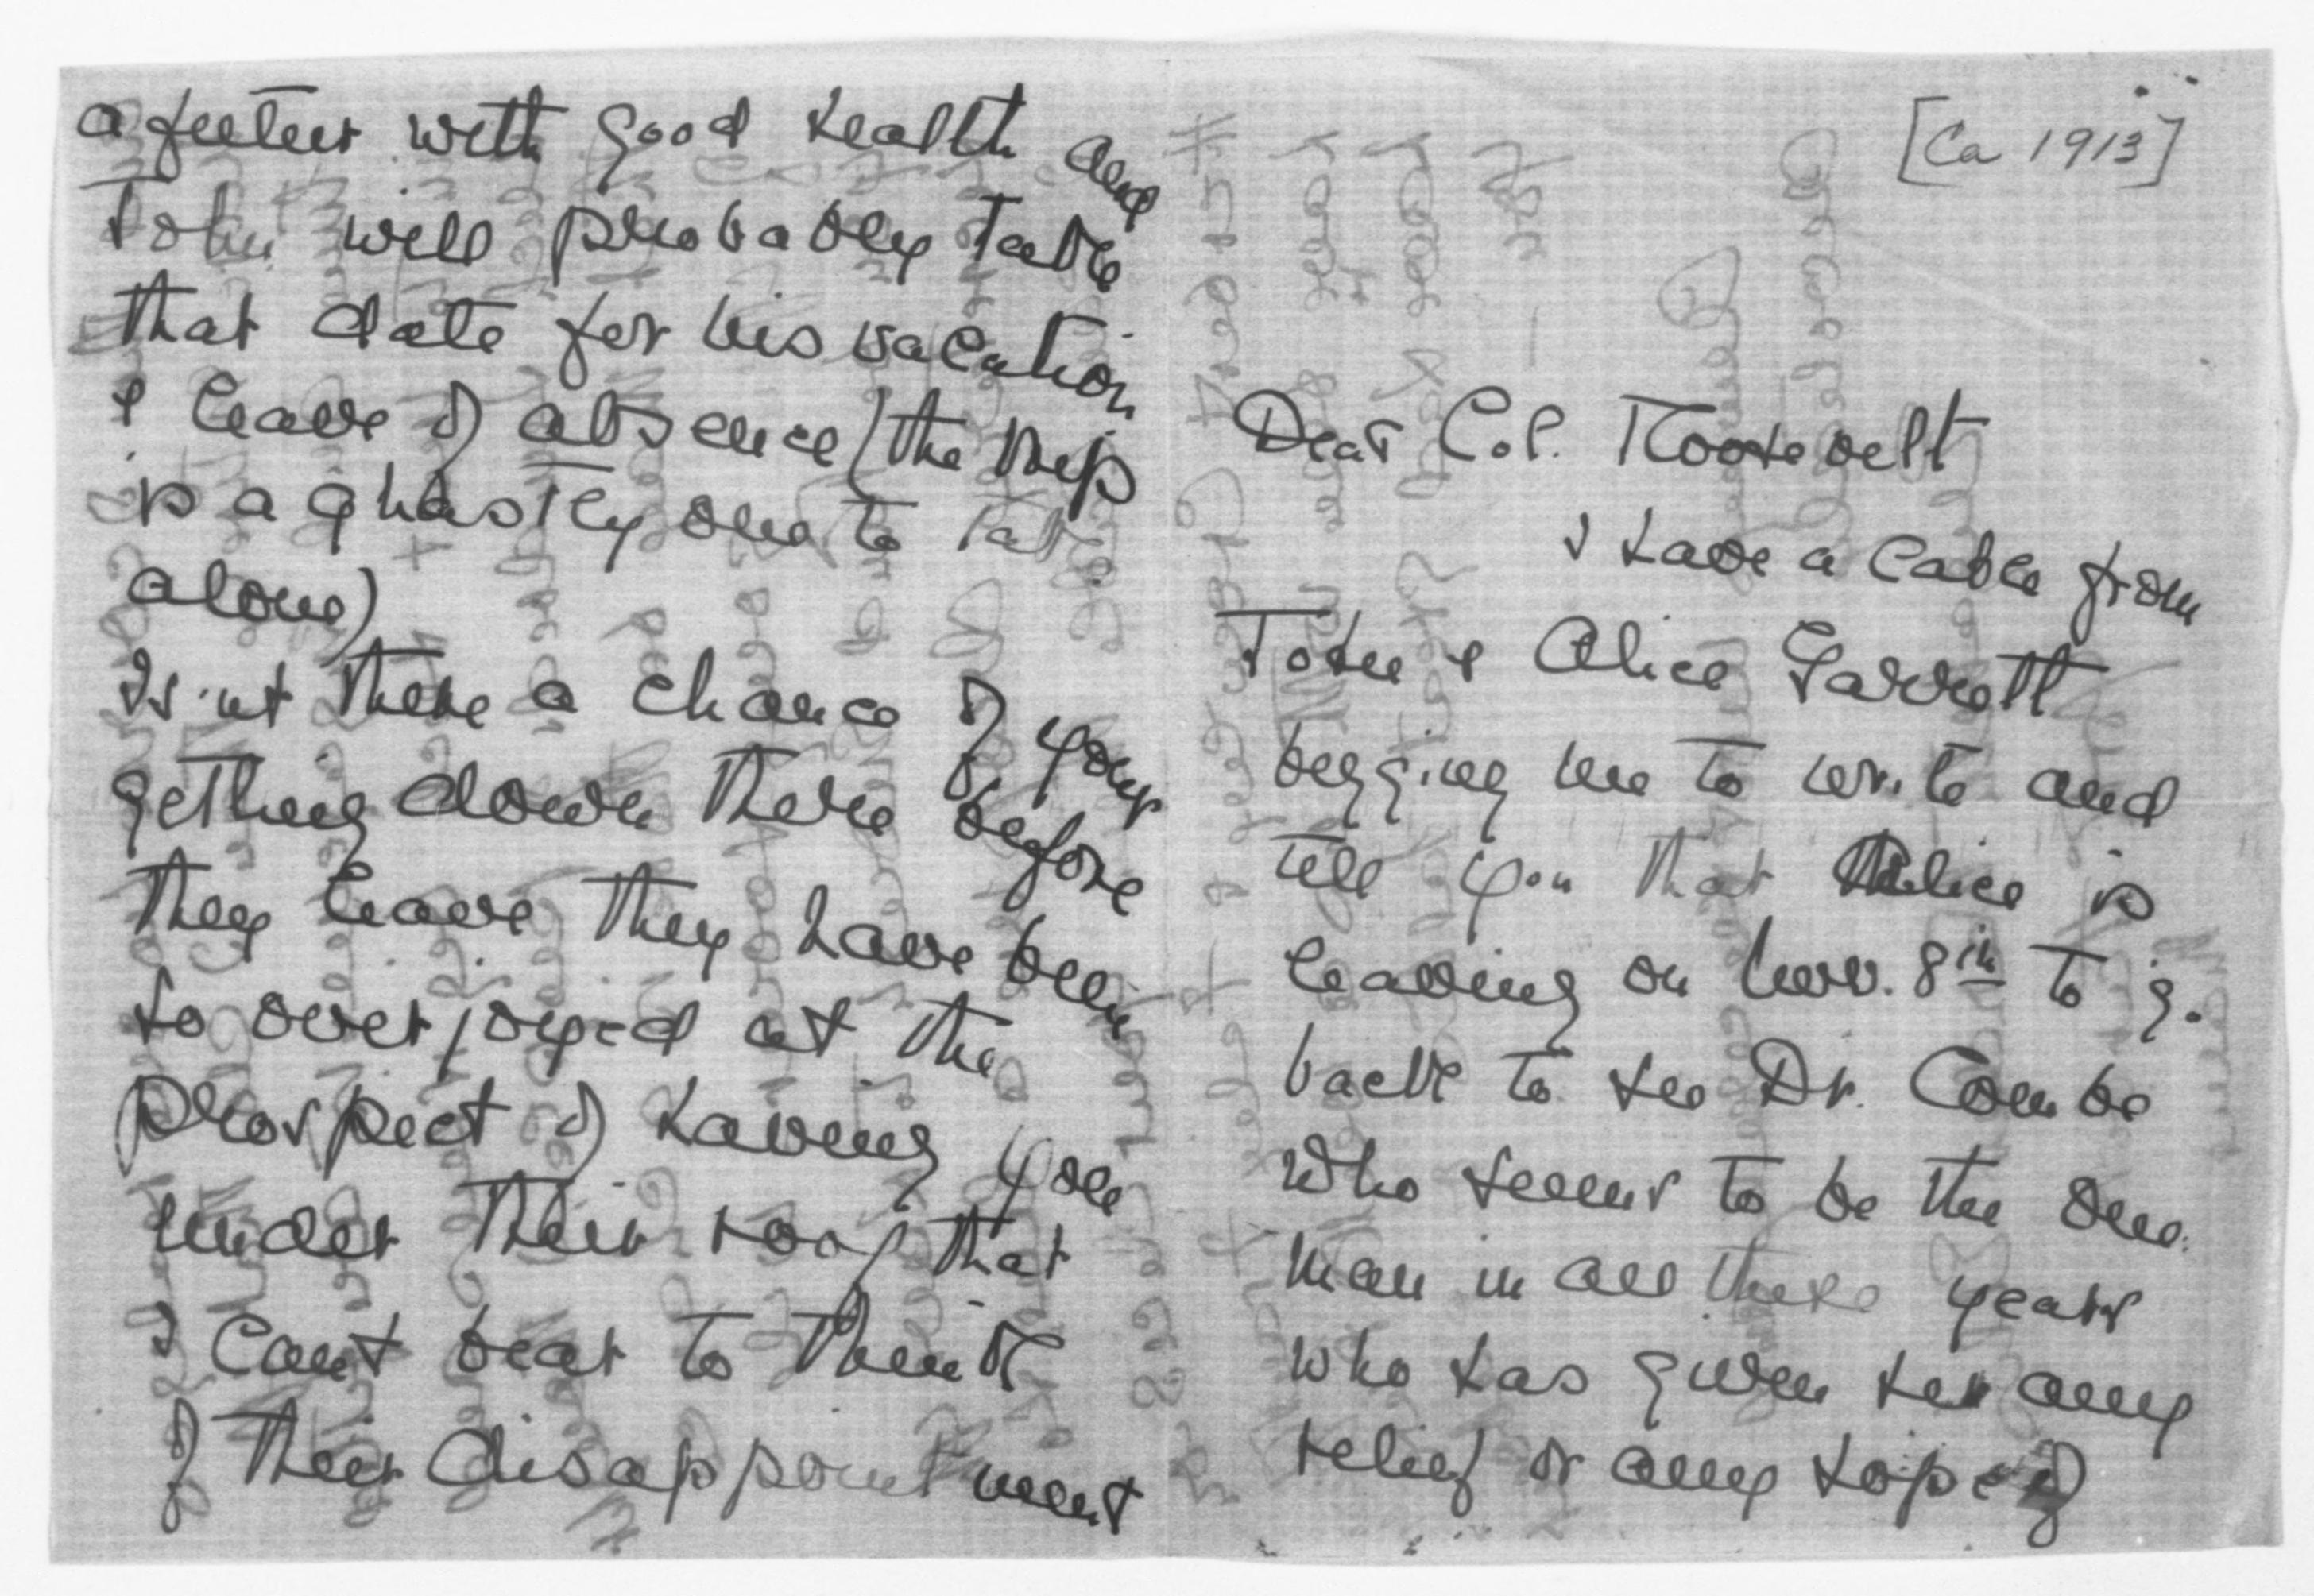 [Ca 1913]
Dear Col. Roosevelt
I have a cable from
John & Alice Garrett
begging me to write and
tell you that Alice is
leaving on Nov. 8th to go
back to see Dr. Combe
who seems to be the one
man in all these years
who has given her any
relief or any hope of
a future with good health and
John will probably take
that date for his vacation
& leave of absence (the trip
is a ghastly one to take
alone)
Is'nt there a chance of your
getting down there before
they leave they have been
so overjoyed at the
prospect of having you
under their roof that
I can't bear to think
of their disappointment